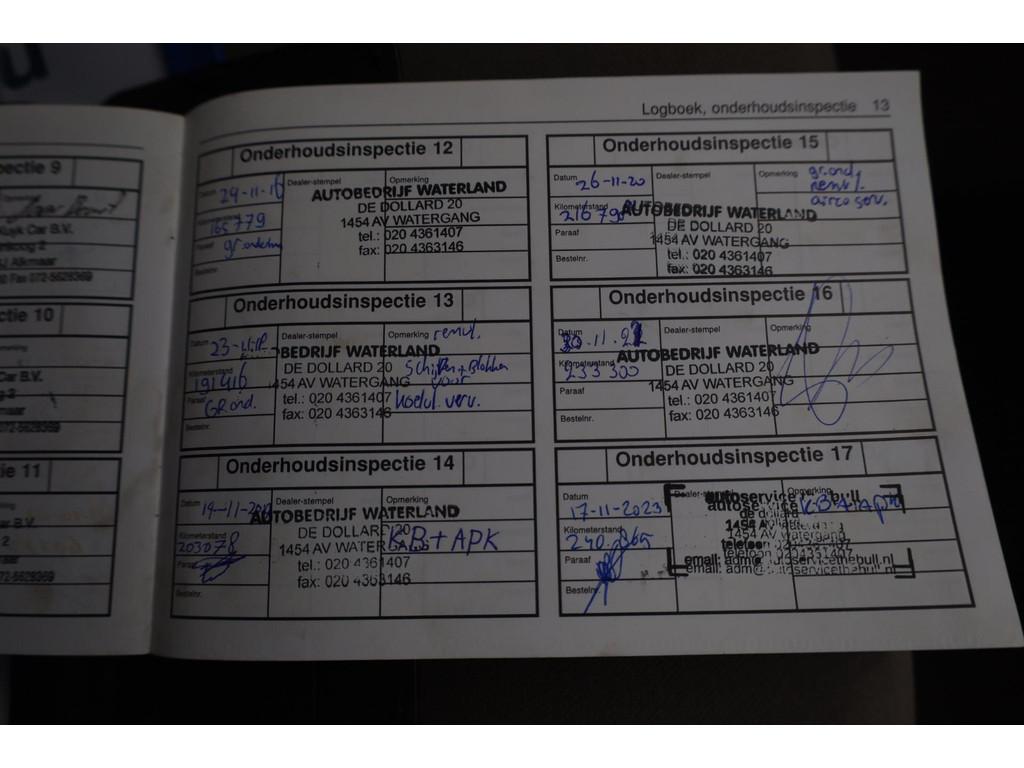 Logboek, onderhoudsinspectie 13
ectie 9
Kuyk Car B.V.
Alkmaar
Fax 072-5628369
ctie 10
Car B.V.
072-5628369
ie 11
B.V.
2
72-5628369
Onderhoudsinspectie 12
Datum 24-11-16
Dealer-stempel
Opmerking
AUTOBEDRIJF WATERLAND
DE DOLLARD 20
Kilometerstand 165779
1454 AV WATERGANG
tel.: 020 4361407
Paraaf
fax: 020 4363146
Bestelnr.
Onderhoudsinspectie 13
Datum 23-
Dealer-stempel
Opmerking remvl.
BEDRIJF WATERLAND
DE DOLLARD 20
Schijven + Blokken
Kilometerstand 191416
1454 AV WATERGANG
voor
Paraaf GRond.
tel.: 020 4361407
koelvl. verv.
fax: 020 4363146
Bestelnr.
Onderhoudsinspectie 14
Datum 19-11-
Dealer-stempel
Opmerking
AUTOBEDRIJF WATERLAND
DE DOLLARD 20
Kilometerstand 203078
1454 AV WATERGANG
KB + APK
Paraaf
tel.: 020 4361407
fax: 020 4363146
Bestelnr.
Onderhoudsinspectie 15
Datum 26-11-20
Dealer-stempel
Opmerking grond,
remvl.
airco serv.
Kilometerstand 21679
AUTOBEDRIJF WATERLAND
DE DOLLARD 20
Paraaf
1454 AV WATERGANG
tel.: 020 4361407
Bestelnr.
fax: 020 4363146
Onderhoudsinspectie 16
Datum 30.11.
Dealer-stempel
Opmerking
AUTOBEDRIJF WATERLAND
DE DOLLARD 20
Kilometerstand 233300
1454 AV WATERGANG
Paraaf
tel.: 020 4361407
fax: 020 4363146
Bestelnr.
Onderhoudsinspectie 17
Datum 17-11-2023
Dealer-stempel
Opmerking KB+APK
autoservice the bull
de dollard
Kilometerstand 240.
1454 AV Watergang
telefoon 0204361407
Paraaf
email: adm@autoservicethebull.nl
Bestelnr.